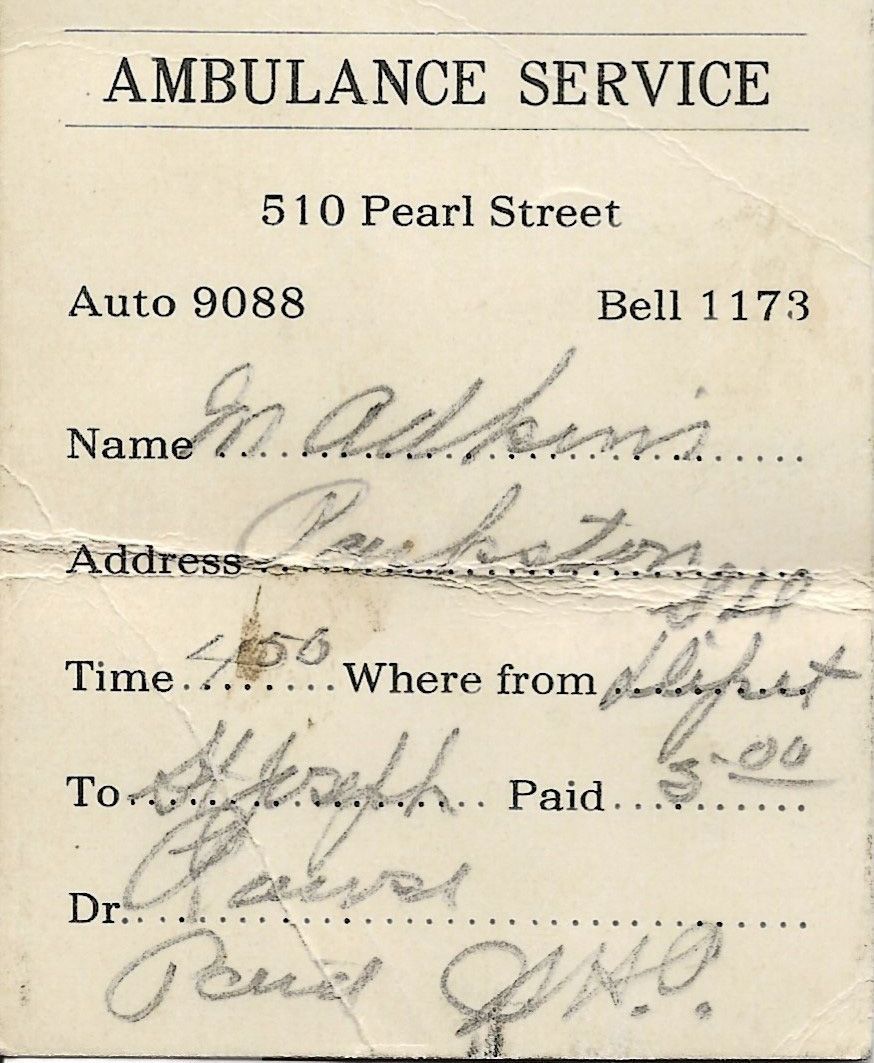 AMBULANCE SERVICE
510 Pearl Street
Auto 9088 Bell 1173
Name M Adkins
Address Parkston
Time 4 50 Where from Depot
To St Joseph Paid 5.00
Dr.
Paid H.P.